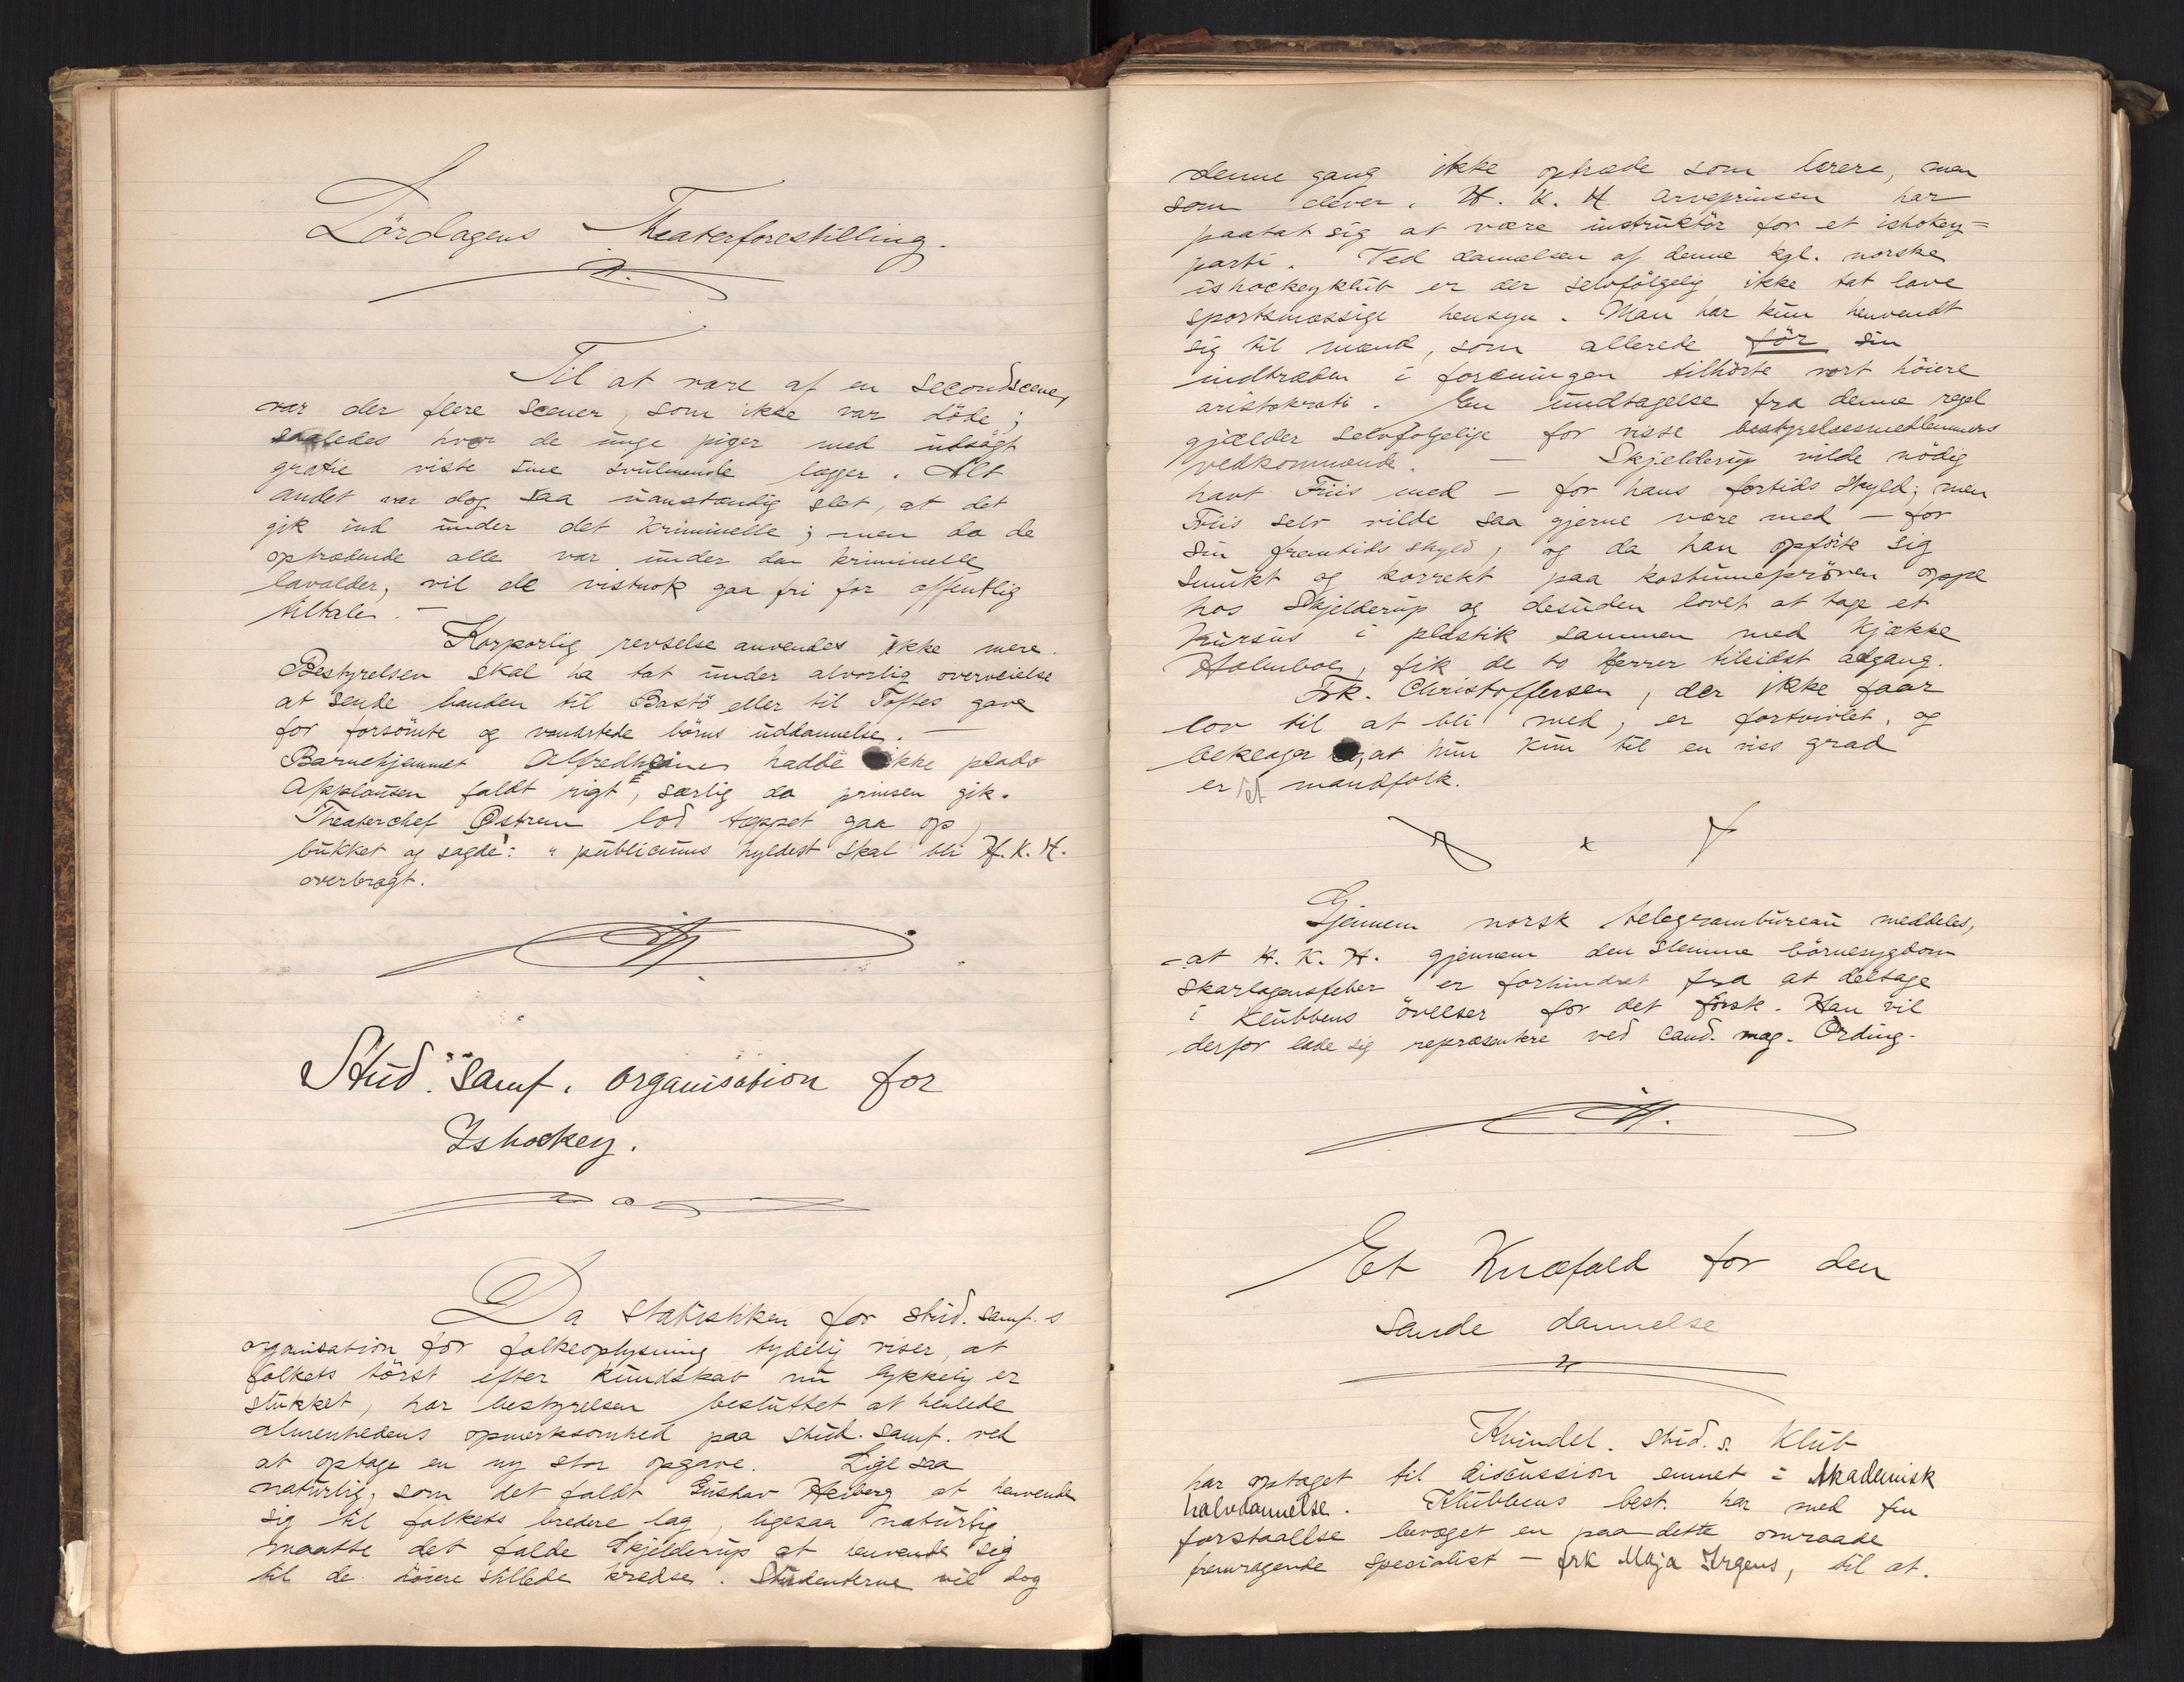 Lördagens Theaterforestilling.
Til at være af en secondscene,
var der flere scener, som ikke var döde;
saaledes hvor de unge piger med udsögt
gratie viste sine svulmende lægger. Alt
andet var dog saa uanstændig slet, at det
gik ind under det kriminelle; men da de
optrædende alle var under den kriminelle
lavalder, vil de vistnok gaa fri for offentlig
tiltale. —
Korporlig revselse anvendes ikke mere.
Bestyrelsen skal ha tat under alvorlig overveielse
at sende banden til Bastö eller til Toftes gave
for forsömte og vanartede börns uddannelse. —
Barnehjemmet Alfredheim hadde ikke plads
Applausen faldt rigt, særlig da prinsen gik.
Theaterchef Østrem lod teppet gaa op,
bukket og sagde: "publicums hyldest skal bli H.K.H.
overbragt.
Stud. Samf. organisation for
Ishockey.
Da statistiken for stud. samf.s
organisation for folkeoplysning tydelig viser, at
folkets törst efter kundskab nu lykkelig er
slukket, har bestyrelsen besluttet at henlede
almenhedens opmerksomhed paa stud. samf. ved
at optage en ny stor opgave. Lige saa
naturlig, som det faldt Gustav Heiberg at henvende
sig til folkets bredere lag, ligesaa naturlig
maatte det falde Skjelderup at henvende sig
til de höiere stillede kredse. Studenterne vil dog
denne gang ikke optræde som lærere, men
som elever. H. K. H. arveprinsen har
paatat sig at være instruktör for et ishokey=
parti. Ved dannelsen af denne kgl. norske
ishockeyklub er der selvfölgelig ikke tat lave
sportsmæssige hensyn. Man har kun henvendt
sig til mænd, som allerede för sin
indtræden i foreningen tilhörte vort höiere
aristokrati. En undtagelse fra denne regel
gjælder selvfolgelige for visse bestyrelsesmedlemmers
vedkommende. — Skjelderup vilde nödig
havt Friis med — for hans fortids skyld; men
Friis selv vilde saa gjerne være med — for
sin fremtids skyld, og da han opförte sig
smukt og korrekt paa kostumepröven oppe
hos Skjelderup og desuden lovet at tage et
kursus i plastik sammen med kjække
Holmboe, fik de to Herrer tilsidst adgang.
Frk. Christoffersen, der ikke faar
lov til at bli med, er fortvivlet, og
beklager, at hun kun til en viss grad
er et mandfolk.
Gjennem norsk telegrambureau meddeles,
- at H. K. H. gjennem den slemme börnesygdom
skarlagensfeber er forhindret fra at deltage
i klubbens övelser for det förste. Han vil
derfor lade sig repræsentere ved cand. mag. Ording.
Et Knæfald for den
sande dannelse
Kvindel. stud.s. Klub
har optaget til discussion emnet: Akademisk
halvdannelse. Klubbens best. har med fin
forstaallse bevæget en paa dette omraade
fremragende specialist — frk Maja Irgens, til at.